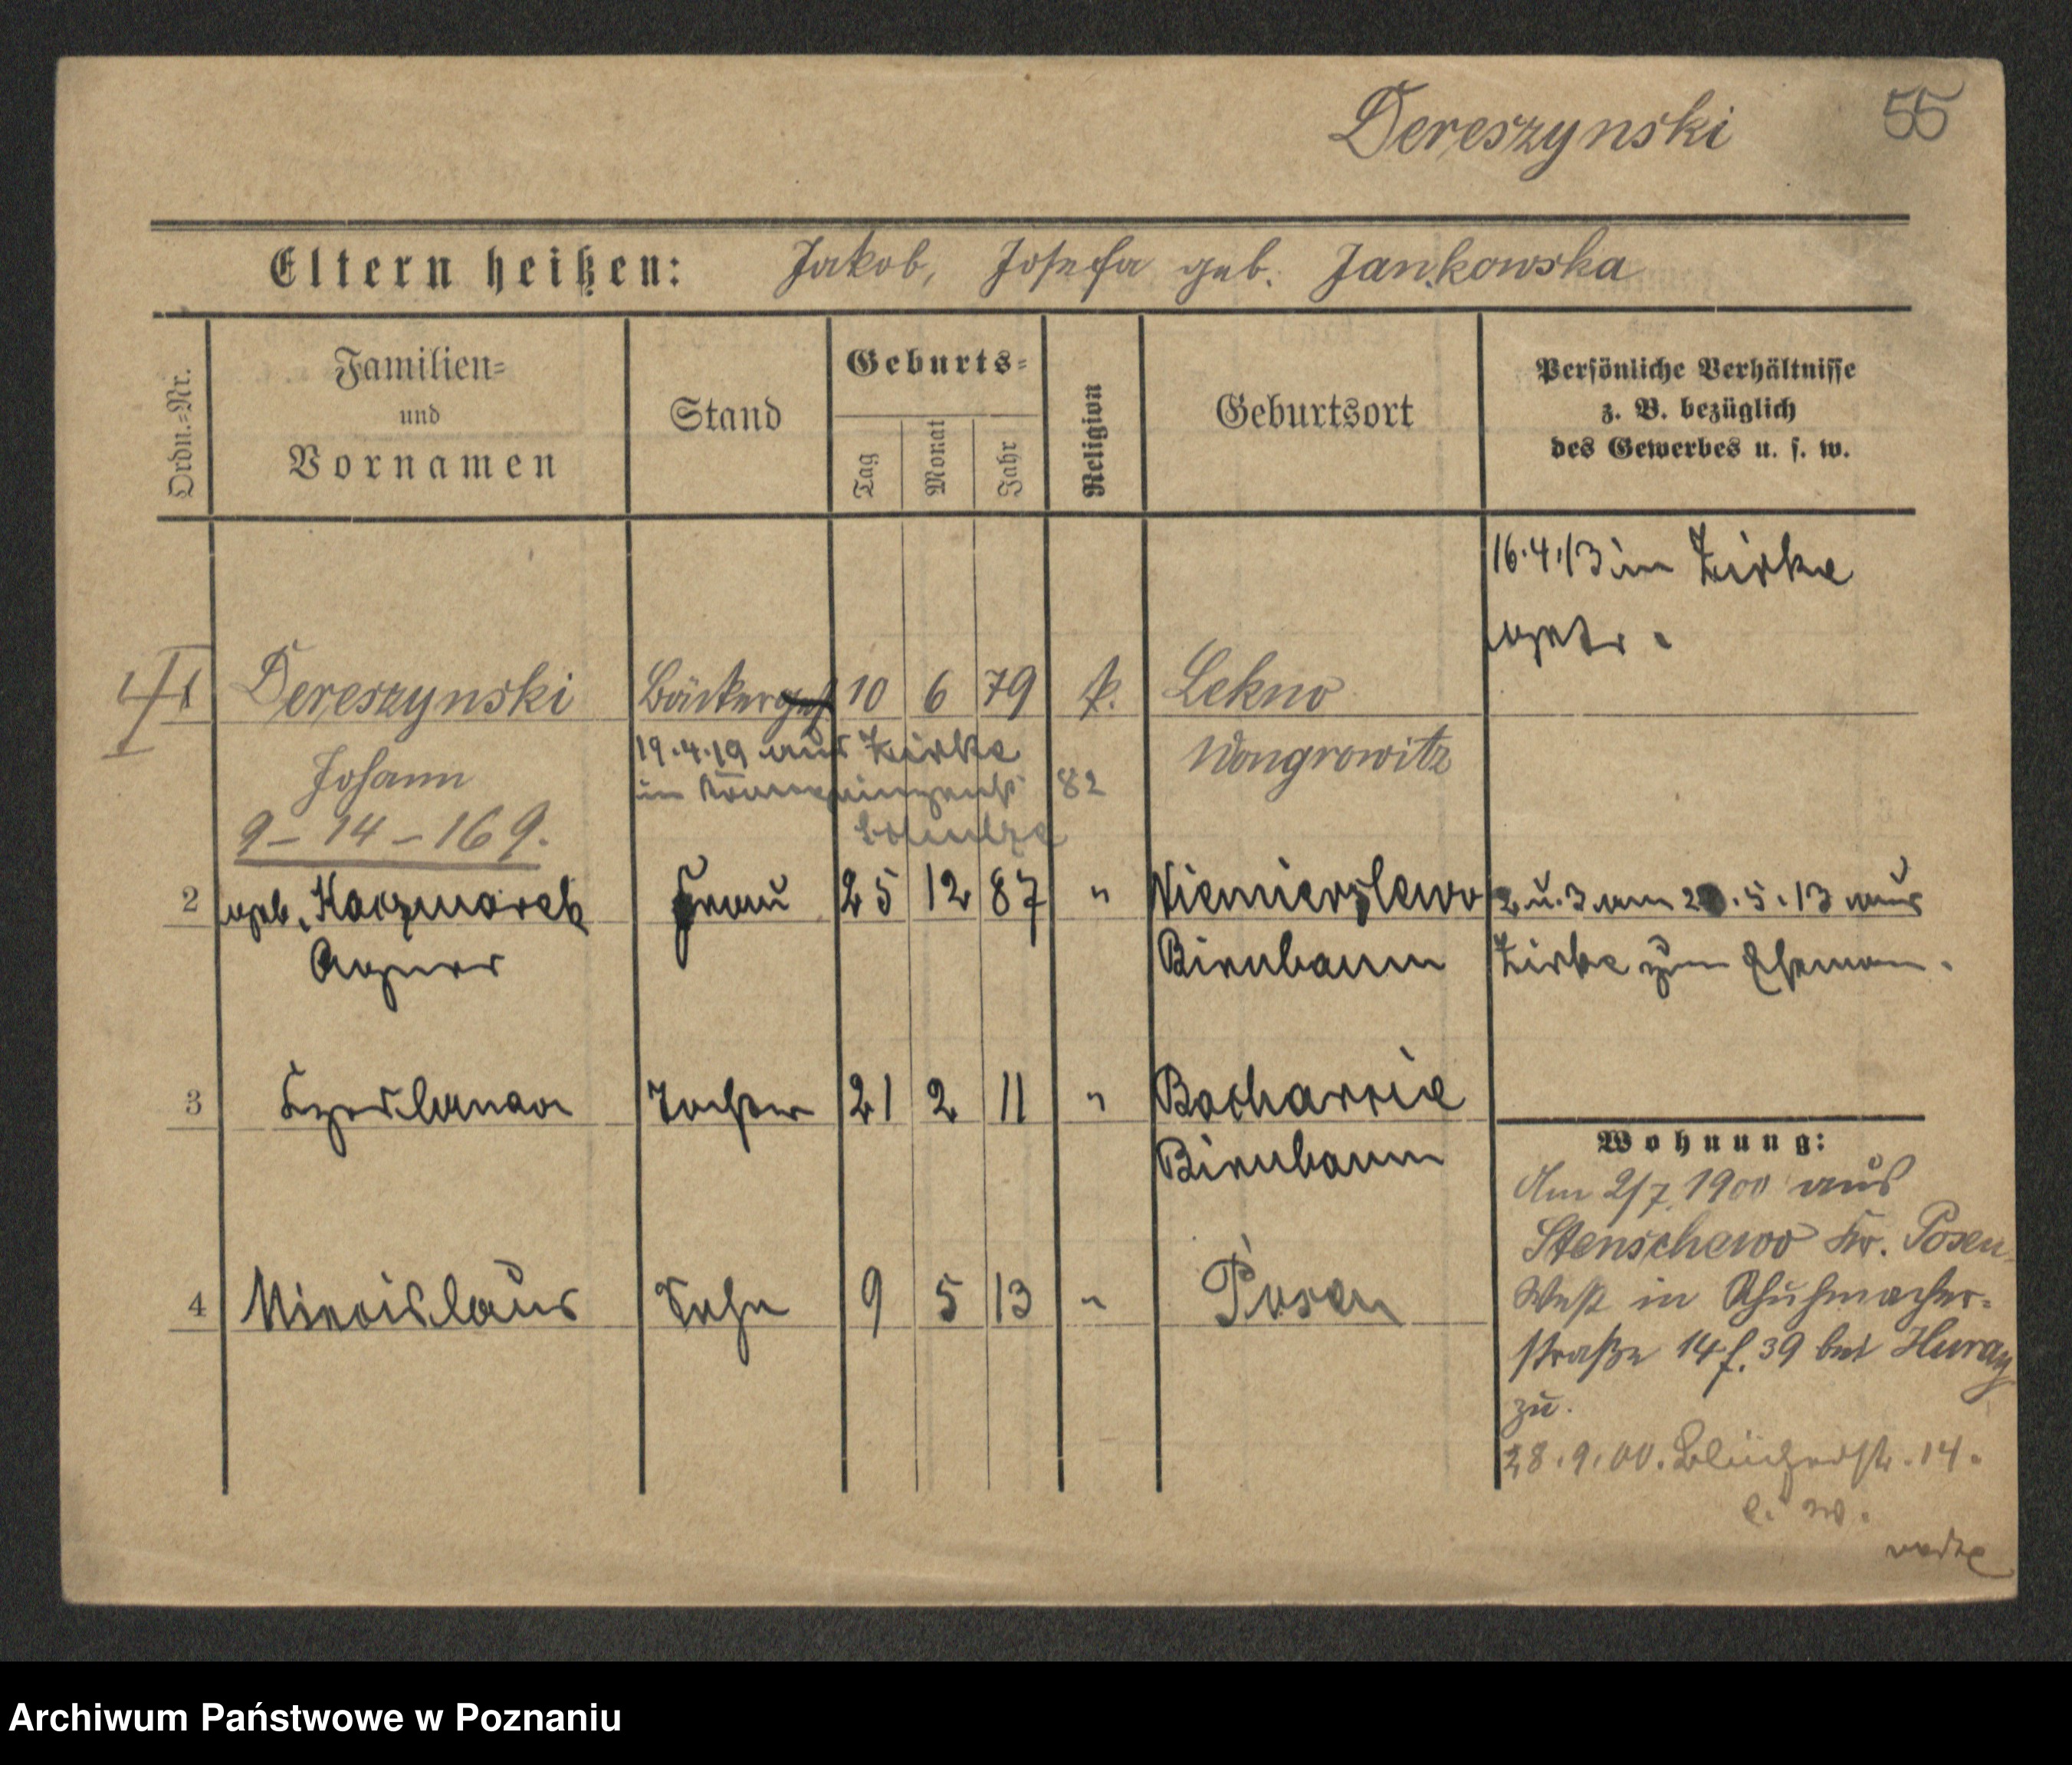 Dereszynski 55
Eltern heißen: Jakob, Josefa geb. Jankowska
Ordn.-Nr.
Familien-
und
Vornamen
Stand
Geburts-
Tag
Monat
Jahr
Religion
Geburtsort
Persönliche Verhältnisse
z. B. bezüglich
des Gewerbes u. s. w.
16.4.13 in Zirke
getr.
1 Dereszynski Bäckerges 10 6 79 k. Lekno
Johann Wongrowitz
19.4.19 aus Zirke
in 82
9-14-169.
2 geb. Kaczmarek Frau 25 12 87 " Niemierzlewo 2 u. 3 am 20.5.13 aus
Agnes Birnbaum Zirke zum Eheman.
3 Tochter 21 2 11 " Bucharzie
Birnbaum
4 Miecislaus Sohn 9 5 13 " Posen
Wohnung:
Am 2/7 1900 aus
Stenschewo Kr. Posen
West in Schuhmacher-
straße 14 f. 39 bei
zu.
28.9.00. Blücherstr. 14.
Archiwum Państwowe w Poznaniu